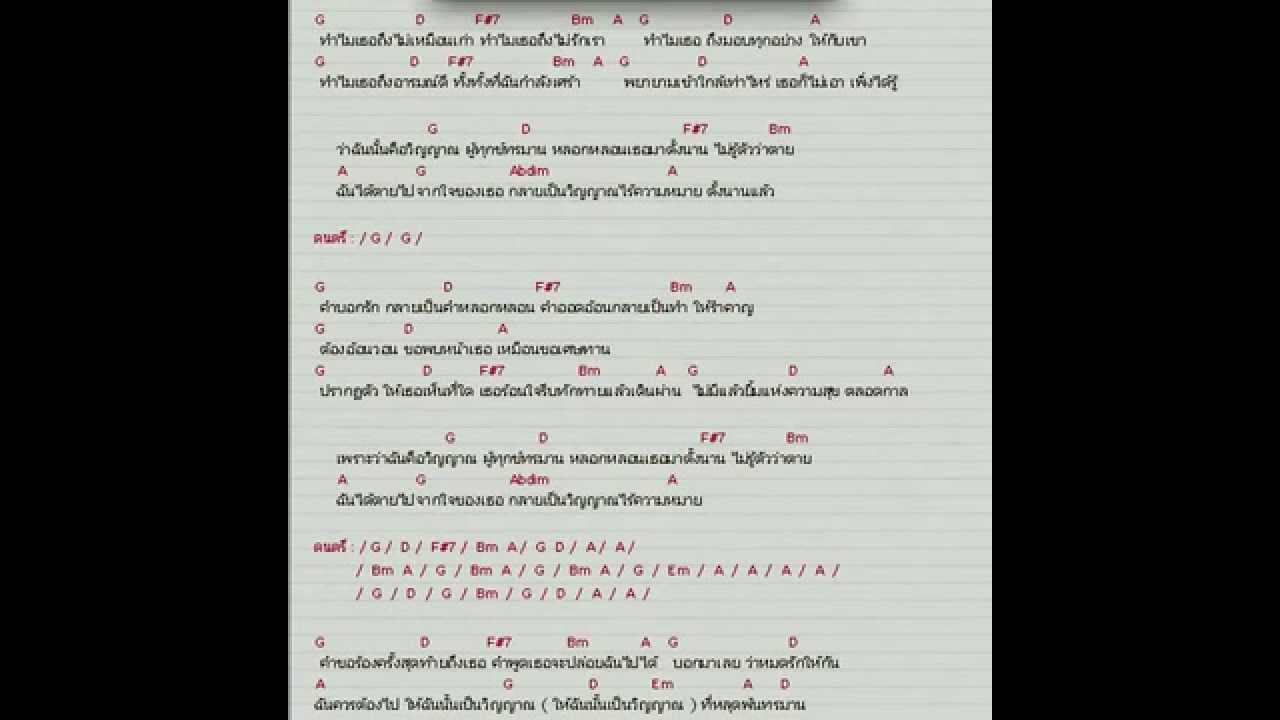 G D F#7 Bm A G D A
ทำไมเธอถึงไม่เหมือนเก่า ทำไมเธอถึงไม่รักเรา ทำไมเธอ ถึงมอบทุกอย่าง ให้กับเขา
G D F#7 Bm A G D A
ทำไมเธอถึงอารมณ์ดี ทั้งทั้งที่ฉันกำลังเศร้า พยายามเข้าใกล้เท่าไหร่ เธอก็ไม่เอา เพิ่งได้รู้
G D F#7 Bm
ว่าฉันนั้นคือวิญญาณ ผู้ทุกข์ทรมาน หลอกหลอนเธอมาตั้งนาน ไม่รู้ตัวว่าตาย
A G Abdim A
ฉันได้ตายไปจากใจของเธอ กลายเป็นวิญญาณไร้ความหมาย ตั้งนานแล้ว
ดนตรี : / G / G /
G D F#7 Bm A
คำบอกรัก กลายเป็นคำหลอกหลอน คำออดอ้อนกลายเป็นทำ ให้รำคาญ
G D A
ต้องอ้อนวอน ขอพบหน้าเธอ เหมือนขอเศษทาน
G D F#7 Bm A G D A
ปรากฏตัว ให้เธอเห็นทีใด เธอร้อนใจรีบทักทายแล้วเดินผ่าน ไม่มีแล้วยิ้มแห่งความสุข ตลอดกาล
G D F#7 Bm
เพราะว่าฉันคือวิญญาณ ผู้ทุกข์ทรมาน หลอกหลอนเธอมาตั้งนาน ไม่รู้ตัวว่าตาย
A G Abdim A
ฉันได้ตายไปจากใจของเธอ กลายเป็นวิญญาณไร้ความหมาย
ดนตรี : / G / D / F#7 / Bm A / G D / A / A /
/ Bm A / G / Bm A / G / Bm A / G / Em / A / A / A / A /
/ G / D / G / Bm / G / D / A / A /
G D F#7 Bm A G D
คำขอร้องครั้งสุดท้ายถึงเธอ คำพูดเธอจะปล่อยฉันไปได้ บอกมาเลย ว่าหมดรักให้กัน
A G D Em A D
ฉันควรต้องไป ให้ฉันนั้นเป็นวิญญาณ ( ให้ฉันนั้นเป็นวิญญาณ ) ที่หลุดพ้นทรมาน